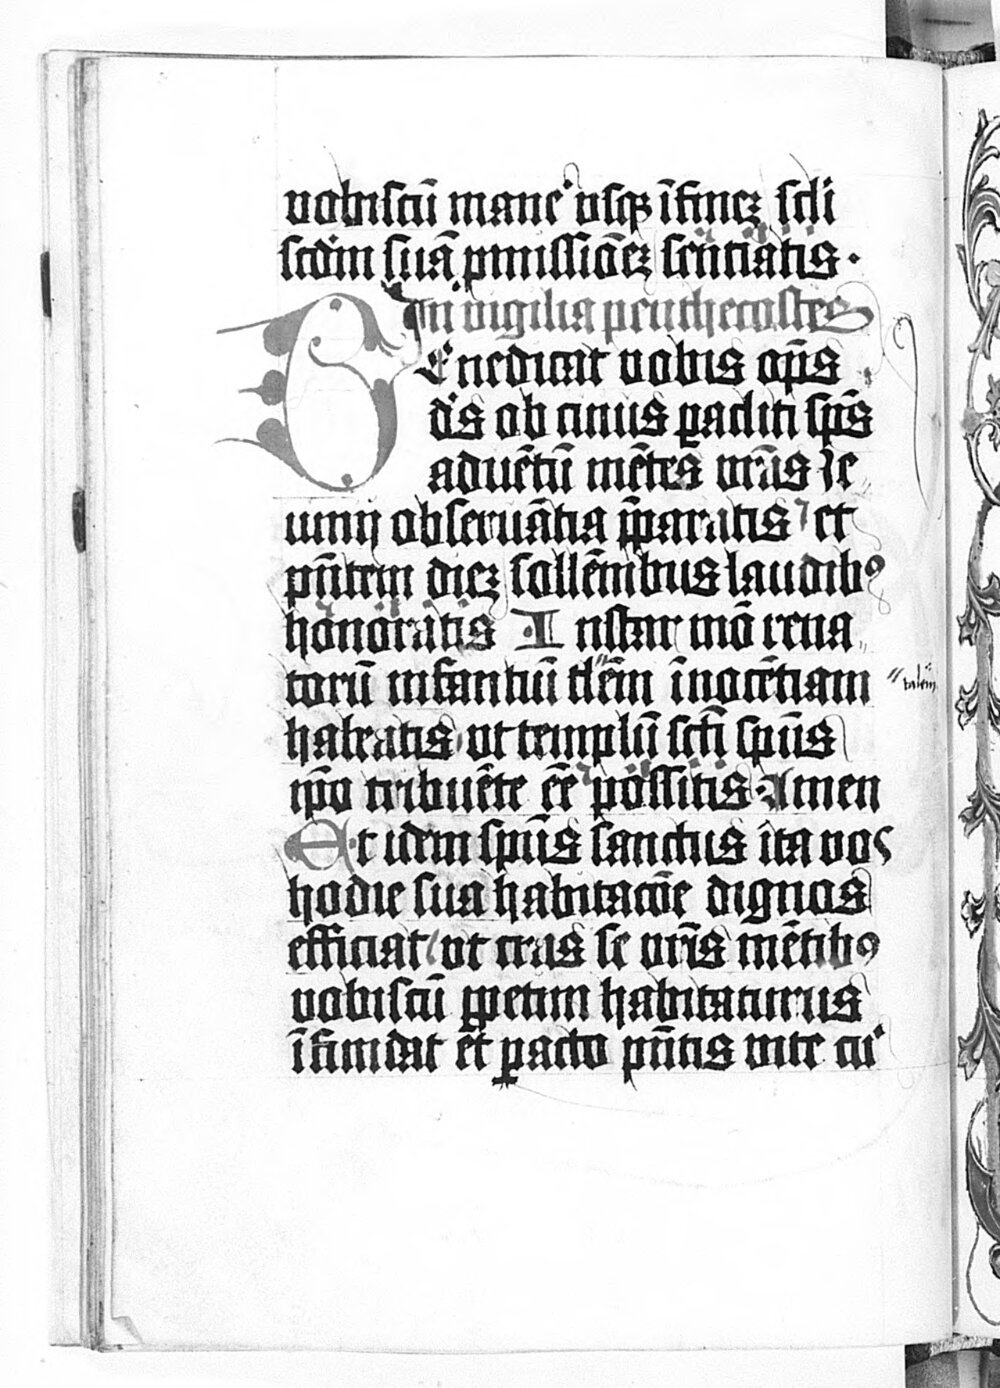 vobiscū mane' vsq̃ ī fineꝫ scli
scd'm suā p̱missiōeꝫ sen̄ciatis.
In vigilia penthecostes
Benedicat vobis op̄s
d's ob cuius paclīti sp̄s
aduētū mētes vr̄as Ie
iunij obseruātia p̄paratis et
pn̄tem dieꝫ sollēnibus laudibꝰ
honoratis Instar mō rena
torū infantiū tlēm īnocētiam
talem
habeatis ut templū sct̄i sp̄us
ip̄o tribuēte ēē possitis Amen
Et idem sp̄us sanctus ita vos
hodie sua habitacōe dignos
efficiat ut cras se vr̄is mētibꝰ
vobiscū ꝑpetim habitaturus
īfundat et ꝑacto pn̄tis vite cu'